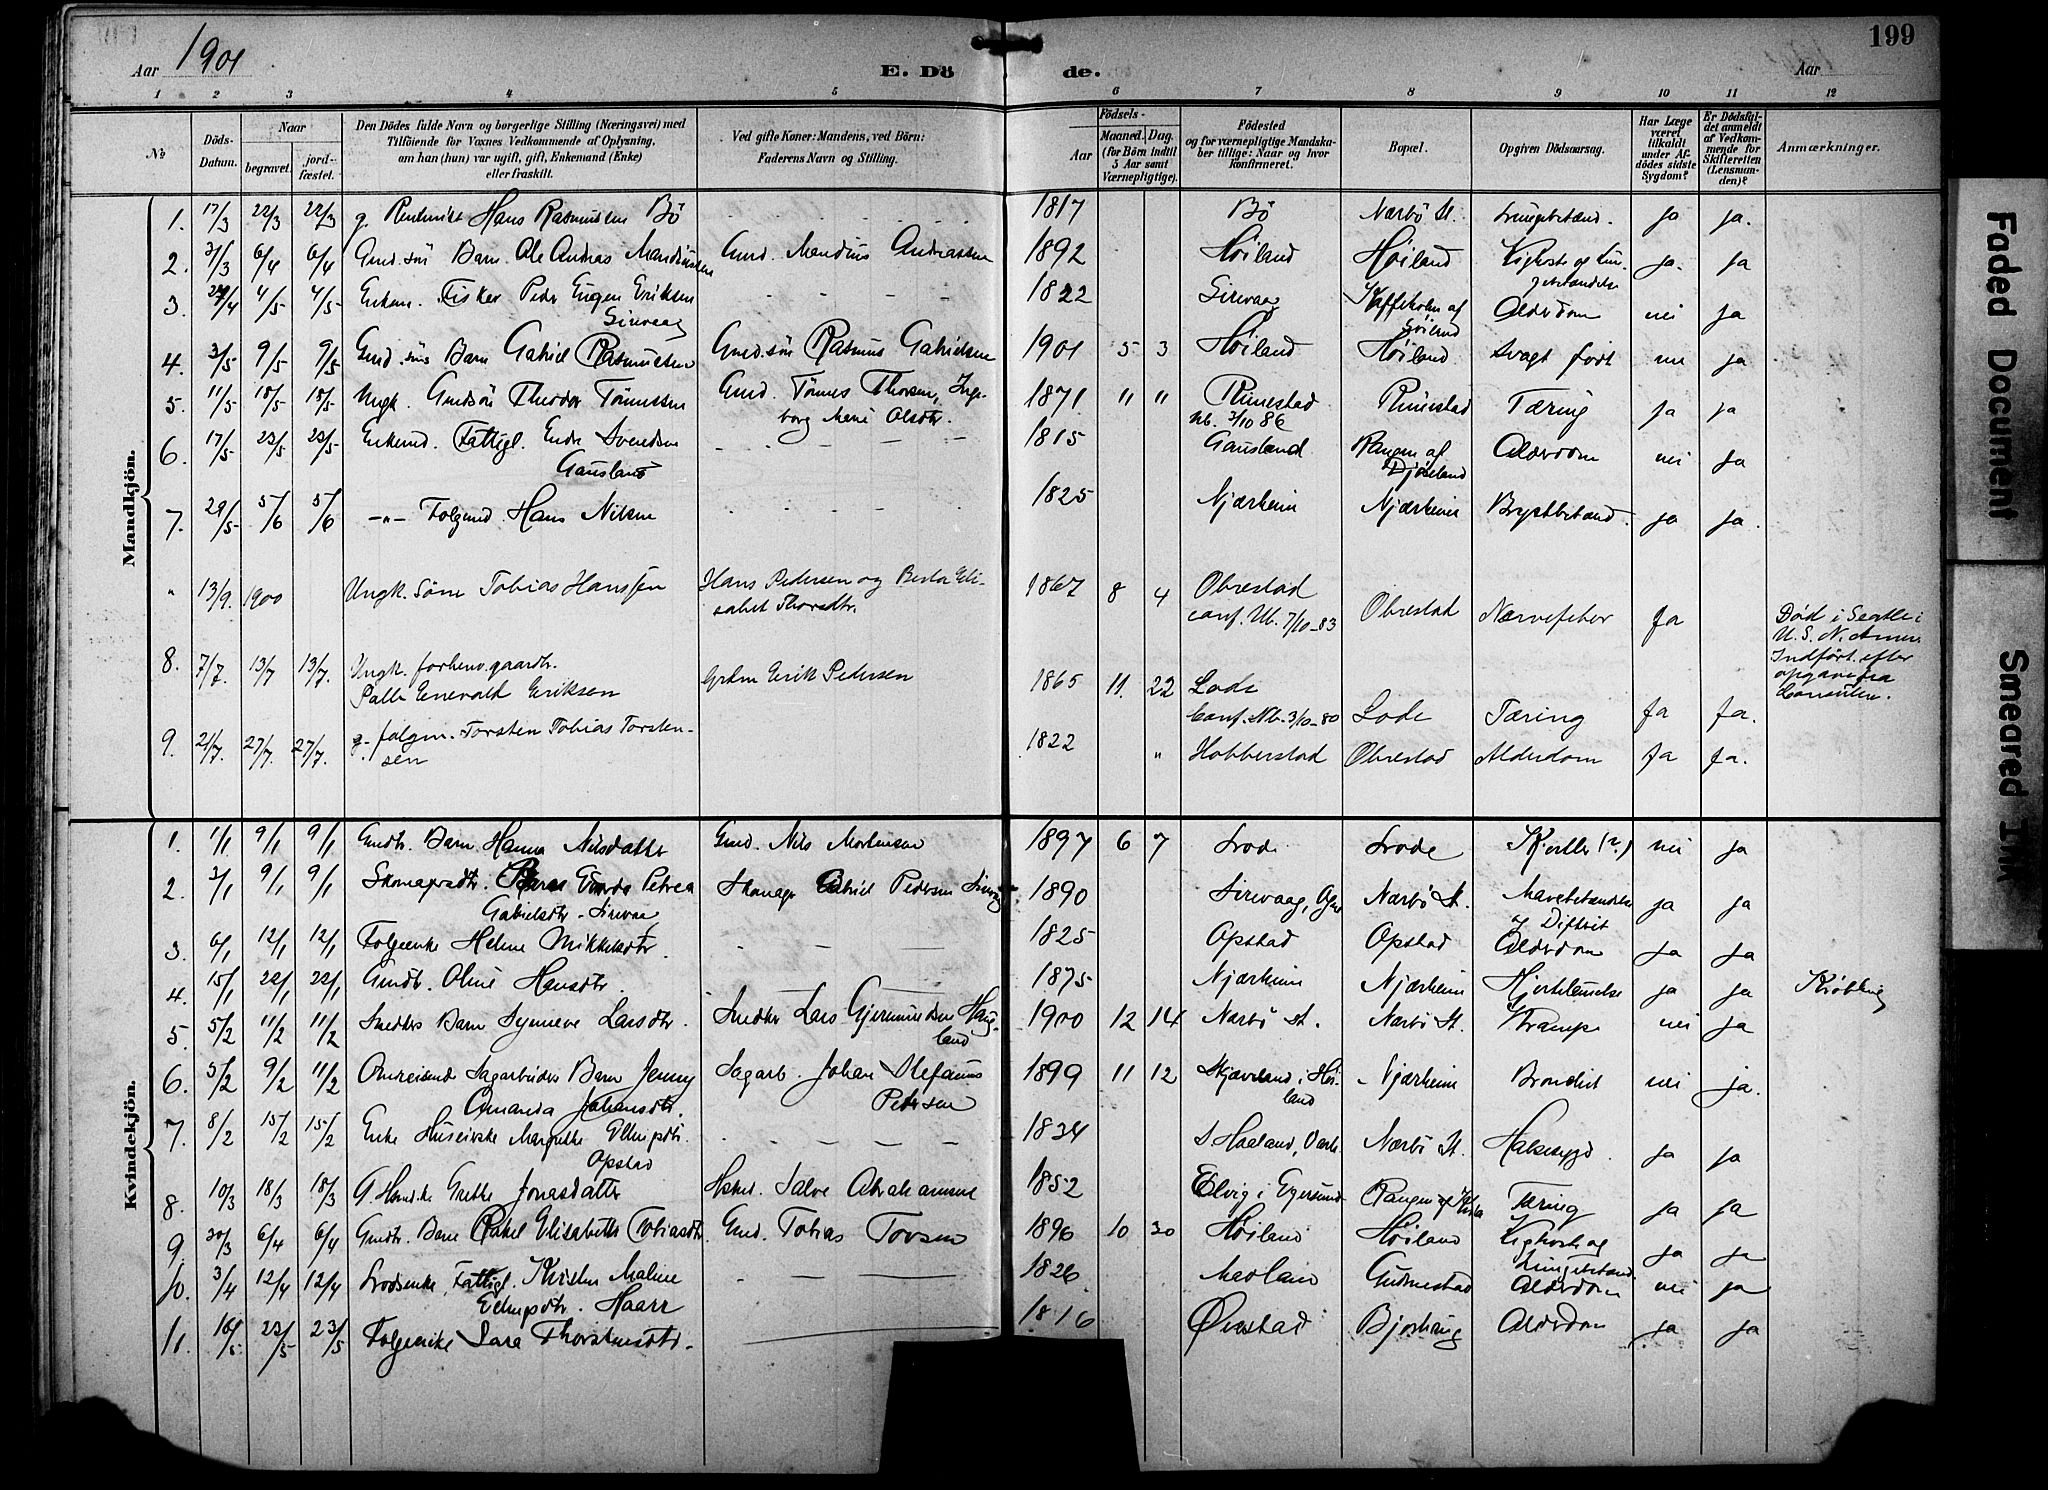 Aar 1901
E. Döde.
Aar
199
1 2 3 4 5 6 7 8 9 10 11 12
No
Döds-Datum.
Naar
begravet.
jord-fæstet.
Den Dödes fulde Navn og borgerlige Stilling (Næringsvei) med
Tilföiende for Voxnes Vedkommende af Oplysning,
om han (hun) var ugift, gift, Enkemand (Enke)
eller fraskilt.
Ved gifte Koner: Mandens, ved Börn:
Faderens Navn og Stilling.
Födsels-
Aar
Maaned. Dag.
(for Börn indtil
5 Aar samt
Værnepligtige).
Födested
og for værnepligtige Mandska-
ber tillige: Naar og hvor
konfirmeret.
Bopæl.
Opgiven Dödsaarsag.
Har Læge
været
tilkaldt
under Af-
dödes sidste
Sygdom?
Er Dödsfal-
det anmeldt
af Vedkom-
mende for
Skifteretten
(Lensman-
den)?
Anmærkninger.
Mandkjön.
1. 17/3 22/3 22/3 g. Hans Rasmussen Bö 1817 Bö Nærbö St. Lungebetænd. ja ja.
2. 31/3 6/4 6/4 Gmd.sön Barn Ole Andreas Mandiussen Gmd. Mandius Andreassen 1892 Höiland Höiland Kighoste og Lungebetændelse ja. ja
3. 4/5 4/5 Enkem. Fisker Peder Eugen Eriksen
Sirevaag 1822 Sirevaag Alderdom nei ja
4. 3/5 9/5 9/5 Gmd.söns Barn Gabriel Rasmussen Gmd.sön Rasmus Gabrielsen 1901 5 3 Höiland Höiland Svagt født nei ja
5. 11/5 18/5 18/5 Ungk. Gmdsön Theodor Tönnessen Gmd. Tönnes Thorsen, Inge-
borg Marie Olsdtr. 1871 " " Rimestad
Nb. 3/10 86 Rimestad Tæring ja ja
6. 17/5 23/5 23/5 Enkemd. Fattigl. Endre Svendsen
Gausland 1815 Gausland Rangen af
Alderdom nei ja
7. 29/5 5/6 5/6 -"- Folgmd. Hans Nilsen 1825 Njærheim Njærheim Brystbetænd. ja ja.
" 13/9. 1900 Ungk. Söm Tobias Hanssen Hans Pedersen og Berta Eli-
sabet Thorsdtr. 1867 8 4 Obrestad
conf. Nb. 7/10-83 Obrestad Nervefeber Ja Död i Seatle i
U. S. N. Amer.
Indført efter
opgave fra
Consulen.
8. 7/7. 13/7 13/7. Ungk. forhenv. gaardbr.
Palle Enevald Eriksen Grdm Erik Pedersen 1865 11. 22 Lode
Conf. Nb. 3/10-80 Lode Tæring Ja Ja.
9. 21/7. 27/7. 27/7. g. folgm. Torsten Tobias Torsten-
sen 1822 " Hobberstad Obrestad Alderdom Ja Ja.
Kvindekjön.
1. 1/1 9/1 9/1 Gmdbr. Barn Hanna Nilsdatter Gmd. Nils Mortensen 1897 6 7 Lode Lode Kjertler (?) nei ja
2. 3/1 9/1 9/1 Skomagersdtr. Petrea
Gabrielsdtr. Sirevaag Skomager Gabriel Pedersen Sirevaag 1890 Sirevaag, Ogne Nærbö St. Mavebetændelse
og Difterit ja ja
3. 6/1 12/1 12/1 Folgeenke Helene Mikkelsdtr. 1825 Opstad Opstad Alderdom ja ja
4. 15/1 22/1 22/1 Gmdtr. Oline Hansdtr. 1875 Njærheim Njærheim Hjertelamelse ja ja Kröbling
5. 5/2 11/2 11/2 Snedkers Barn Synneve Larsdtr. Snedker Lars Gjermundsen Haug-
land 1900 12 14 Nærbö St. Nærbö St. Krampe nei ja
6. 5/2 9/2 11/2 Omreisende Sagarbeiders Barn Jenny
Amanda Johansdtr. Sagarb. Johan Stefanus
Pedersen 1899 11 12 Skjæveland i Höi-
land Njærheim Bronchit nei ja.
7. 8/2 15/2 15/2 Enke Huseierske Margrethe Ellingsdtr.
Opstad 1834 S. Haaland, Varh. Nærbö St. Halsesygd. ja ja
8. 10/3 18/3 18/3 G. Grethe Jonasdatter Salve Abrahamsen 1852 Elvig i Egersund Tæring ja ja
9. 30/3 6/4 6/4 Gmdtr. Barn Rakel Elisabeth Tobiasdtr. Gmd. Tobias Torsen 1896 10 30 Höiland Höiland Kighoste og
Lungebetænd. ja ja
10. 3/4 12/4 12/4 Lodsenke, Fattigl. Kristen Maline
Ellingsdtr. Haarr 1826 Gudmestad Alderdom nei ja
11. 16/5 23/5 23/5 Folgeenke Sara Thorstensdtr. 1816 Øvestad Bjorhaug Alderdom ja ja
Faded Document
Smeared Ink